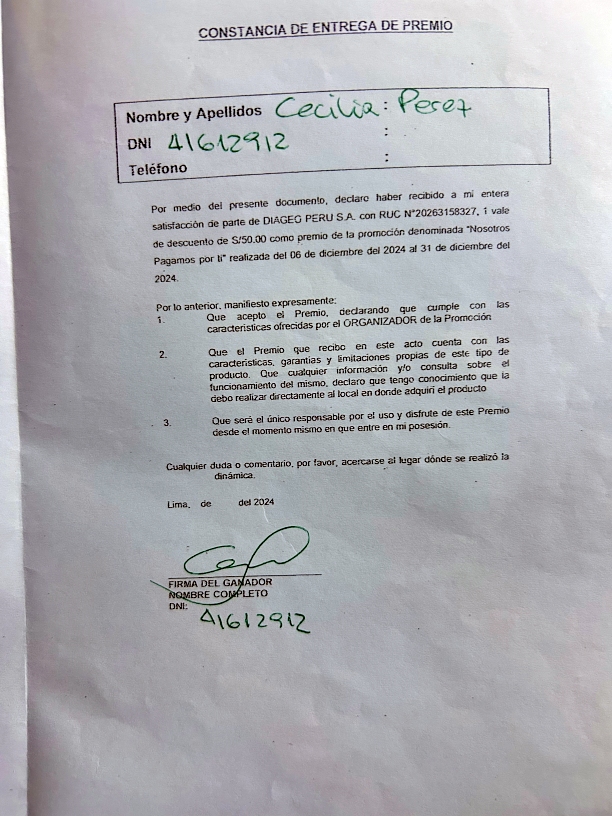 CONSTANCIA DE ENTREGA DE PREMIO
Nombre y Apellidos Cecilia : Perez
DNI 41612912 :
Teléfono :
Por medio del presente documento, declaro haber recibido a mi entera
satisfacción de parte de DIAGEO PERU S.A. con RUC N°20263158327, 1 vale
de descuento de S/50.00 como premio de la promoción denominada "Nosotros
Pagamos por ti" realizada del 06 de diciembre del 2024 al 31 de diciembre del
2024.
Por lo anterior, manifiesto expresamente:
1. Que acepto el Premio, declarando que cumple con las
características ofrecidas por el ORGANIZADOR de la Promoción
2. Que el Premio que recibo en este acto cuenta con las
características, garantías y limitaciones propias de este tipo de
producto. Que cualquier información y/o consulta sobre el
funcionamiento del mismo, declaro que tengo conocimiento que la
debo realizar directamente al local en donde adquirí el producto
3. Que seré el único responsable por el uso y disfrute de este Premio
desde el momento mismo en que entre en mi posesión.
Cualquier duda o comentario, por favor, acercarse al lugar dónde se realizó la
dinámica.
Lima, de del 2024
FIRMA DEL GANADOR
NOMBRE COMPLETO
DNI:
41612912